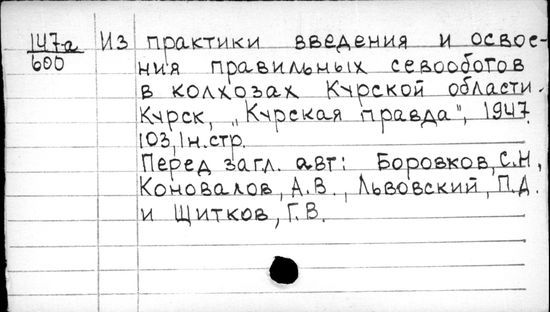 147а Из практики введения и освое-
600 ния правильных севооботов
в колхозах Курской области.
Курск, „Курская правда", 1947.
103, 1н.стр.
Перед загл. авт: Боровков, С.Н.,
Коновалов, А.В., Львовский, П.Д.
и Щитков, Г.В.